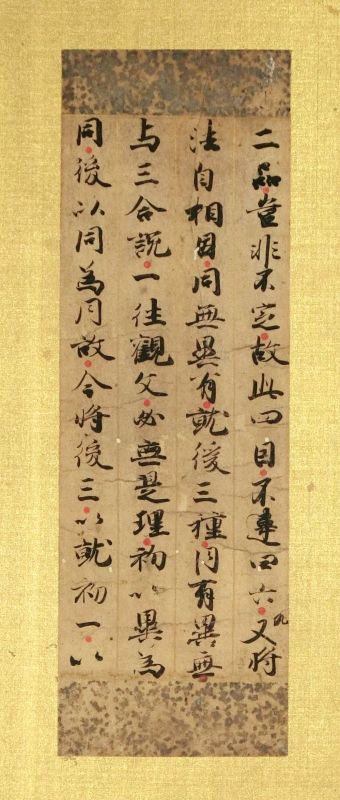 二品豈非不定故此四目不違四六九又將
法自相因同無異有就後三種同有異無
与三合說一往觀父必無是理初以異為
同後以同為同故今將後三以就初一以